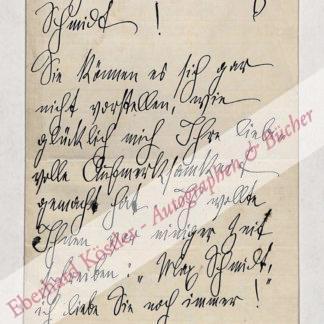 Schmidt !
Sie können es sich gar
nicht vorstellen, wie
glücklich mich Ihre liebe-
volle Aufmerksamkeit
gemacht hat. Ich wollte
Ihnen vor einiger Zeit
schreiben: „Max Schmidt,
ich liebe Sie noch immer!"
Eberhard Köstler - Autographen & Bücher